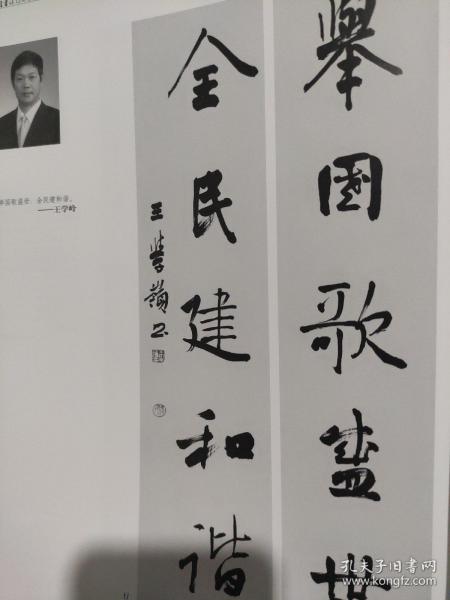 舉國歌盛世
全民建和谐
王學嶺书
举国歌盛世，全民建和谐。
——王学岭
孔夫子旧书网
kongfz.com